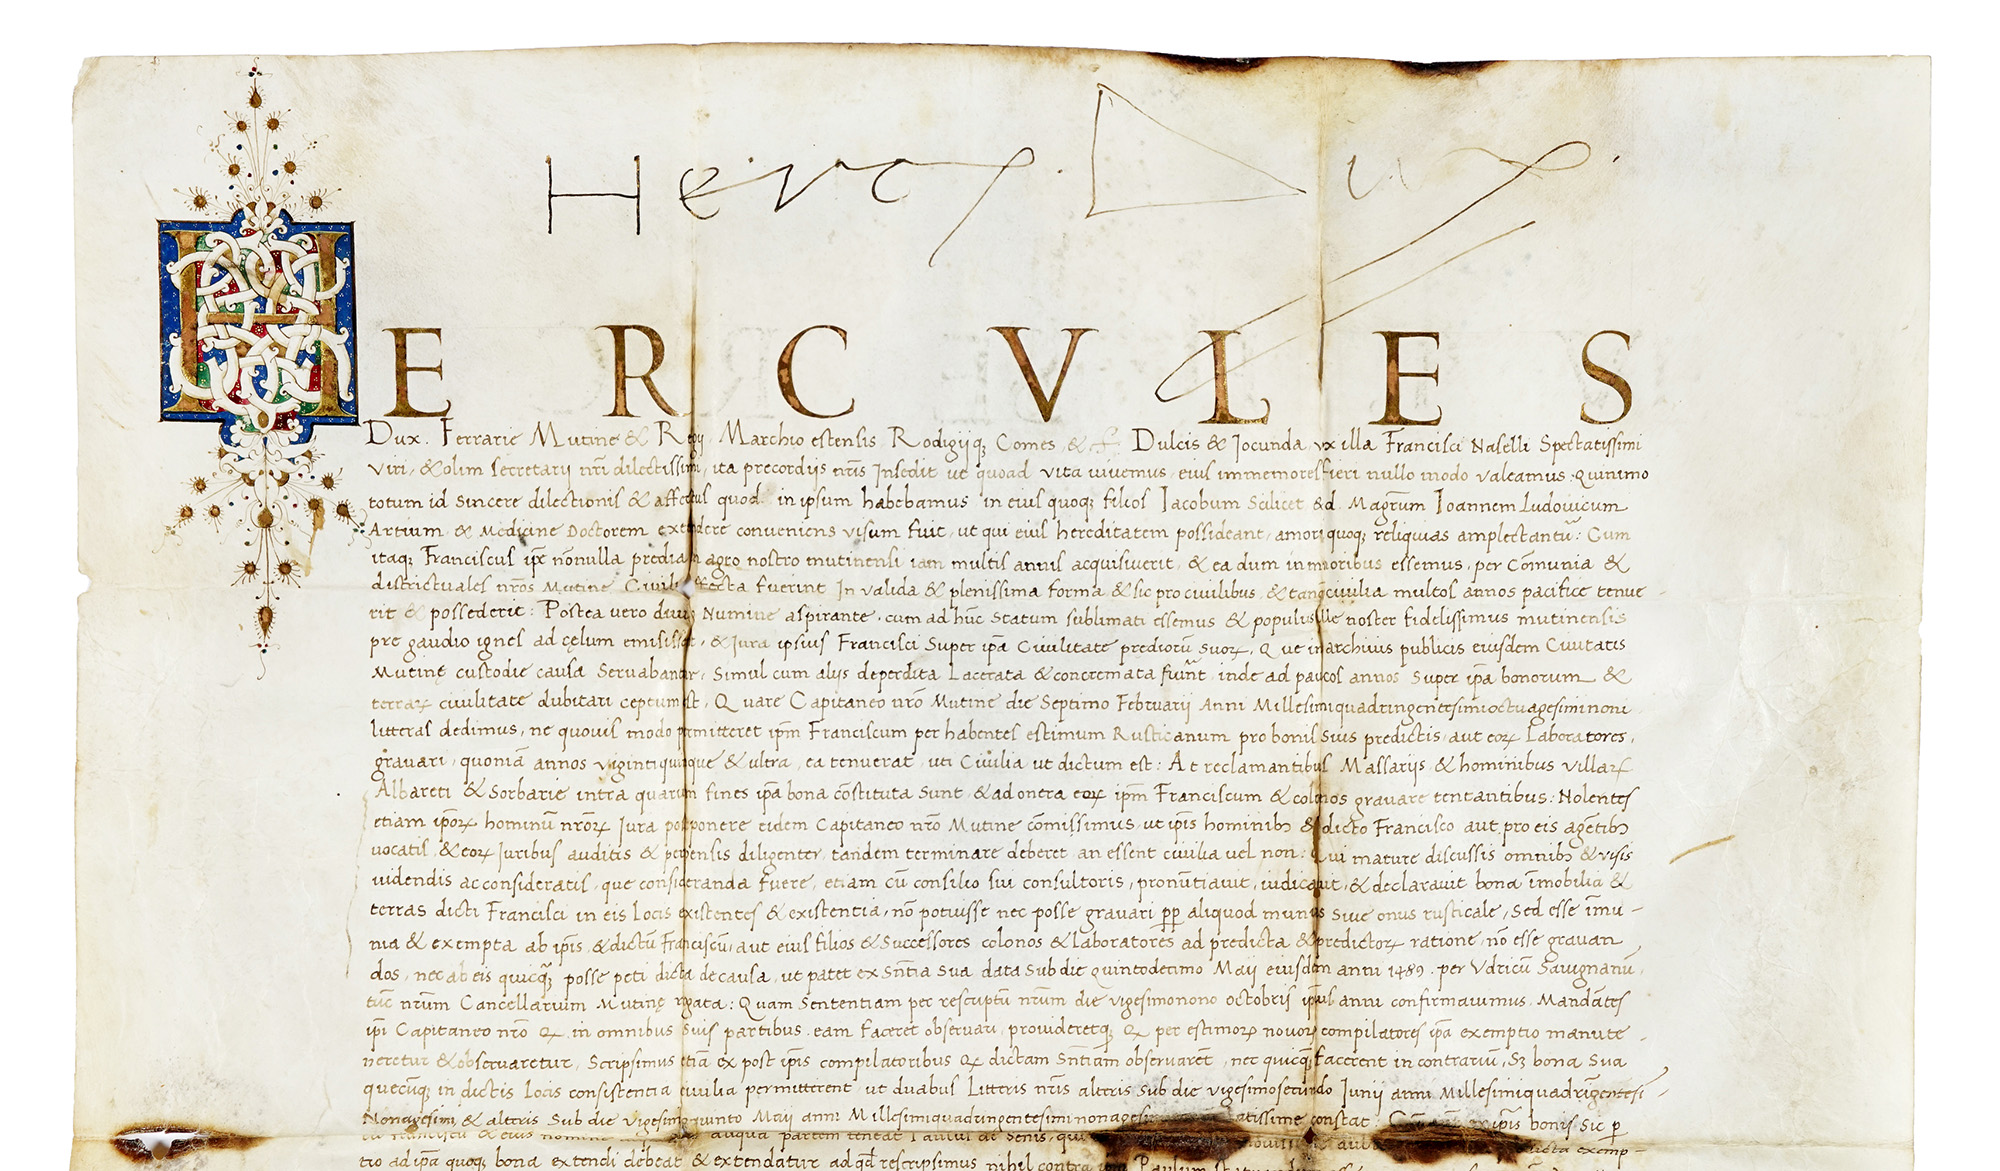 Herc. Dux.
HERCVLES
Dux. Ferrarie Mutine & Regij, Marchio estensis Rodigijq; Comes, & cf. Dulcis & Jocunda, vx illa Francisci Naselli Spectatissimi
Viri, & olim secretarij nr̄i dilectissimi, ita precordijs nr̄is Insedit ut quoad vita viuemus, eius immemores fieri nullo modo valeamus. Quinimo
totum id sincere dilectionis & affectus quod in ipsum habebamus in eius quoq; filios Jacobum Scilicet & d. Magr̄um Joannem Ludouicum
Artium & Medicine Doctorem extendere conueniens visum fuit, ut qui eius hereditatem possideant, amoris quoq; reliquias amplectantur: Cum
itaq; Franciscus ip̄e nōnulla predia in agro nostro mutinensi iam multis annis acquisiuerit, & ea dum in minoribus essemus, per Cōmunia &
districtuales nr̄os Mutine Ciuilia effecta fuerint In valida & plenissima forma & sic pro ciuilibus, & tanq̄ ciuilia multos annos pacifice tenue-
rit & possederit: Postea vero diuino Numine aspirante, cum ad hūc Statum sublimati essemus & populus ille noster fidelissimus mutinensis
pre gaudio ignes ad cęlum emisisset, & Jura ipsius Francisci Super ip̄a Ciuilitate prediorū suoꝝ, Que in archiuis publicis eiusdem Ciuitatis
Mutinę custodie causa Seruabantur, Simul cum alijs deperdita Lacerata & concremata fuer̄nt, inde ad paucos annos Super ip̄a bonorum &
terraꝝ ciuilitate dubitari ceptum est, Quare Capitaneo nr̄o Mutine die Septimo Februarij Anni Millesimiquadringentesimioctuagesiminoni
litteras dedimus, ne quouis modo permitteret ip̄m Franciscum per habentes estimum Rusticanum pro bonis Suis predictis, aut eoꝝ Laboratores,
grauari, quoniā annos vigintiquinque & ultra, ea tenuerat, uti Ciuilia ut dictum est: At reclamantibus Massarijs & hominibus villaꝝ
Albareti & Sorbarie intra quarum fines ip̄a bona cōstituta Sunt, & ad onera eoꝝ ip̄m Franciscum & colonos grauare tentantibus: Nolentes
etiam ip̄oꝝ hominū nr̄oꝝ Jura postponere eidem Capitaneo nr̄o Mutine cōmissimus, ut ip̄is hominibꝫ & dicto Francisco aut pro eis agētibꝫ
vocatis, & eoꝝ Juribus auditis & pensis diligenter, tandem terminare deberet, an essent ciuilia uel non: Qui mature discussis omnibꝫ & visis
uidendis ac consideratis, que consideranda fuere, etiam cū consilio sui consultoris, pronūtiauit, iudicauit, & declarauit bona īmobilia &
terras dicti Francisci in eis Locis existentes & existentia, nō potuisse nec posse grauari ꝑꝑ aliquod munus Siue onus rusticale, Sed esse īmu-
nia & exempta ab ip̄is, & dictū Franciscū, aut eius filios & Successores colonos & laboratores ad predicta & predictoꝝ ratione, nō esse grauan
dos, nec ab eis quicq̄ posse peti dicta de causa, ut patet ex Sn̄tia Sua data Sub die quintodecimo Maij eiusdem anni 1489. per Vdricū Sauignanū,
tūc nr̄um Cancellarium Mutinę rogata: Quam Sententiam per rescriptū nr̄um die vigesimonono octobris ipsius anni confirmauimus, Mandātes
ip̄i Capitaneo nr̄o Qꝫ in omnibus suis partibus eam faceret obseruari, prouideretq; Qꝫ per estimoꝝ nouoꝝ compilatores ip̄a exemptio manute-
neretur & obseruaretur, Scripsimus etiā ex post ip̄is compilatoribus Qꝫ dictam Sn̄tiam obseruarēt, nec quicq̄ facerent in contrariū, Sꝫ bona Sua
quecūq; in dictis Locis consistentia ciuilia permitterent, ut duabus Litteris nr̄is alteris sub die vigesimosecundo Junij anni Millesimiquadringentesi-
Nonagesimi, & alteris Sub die vigesimoquinto Maij anni Millesimiquadringentesiminonagesimi latissime constat: ip̄is bonis Sic ꝑ
Franciscū & eius nomine aliqua partem teneat Paulus de Senis, qui dicta exemp-
tio ad ip̄a quoq; bona extendi debeat & extendatur ad qd̄ rescripsimus nihil contra ip̄m Paulum